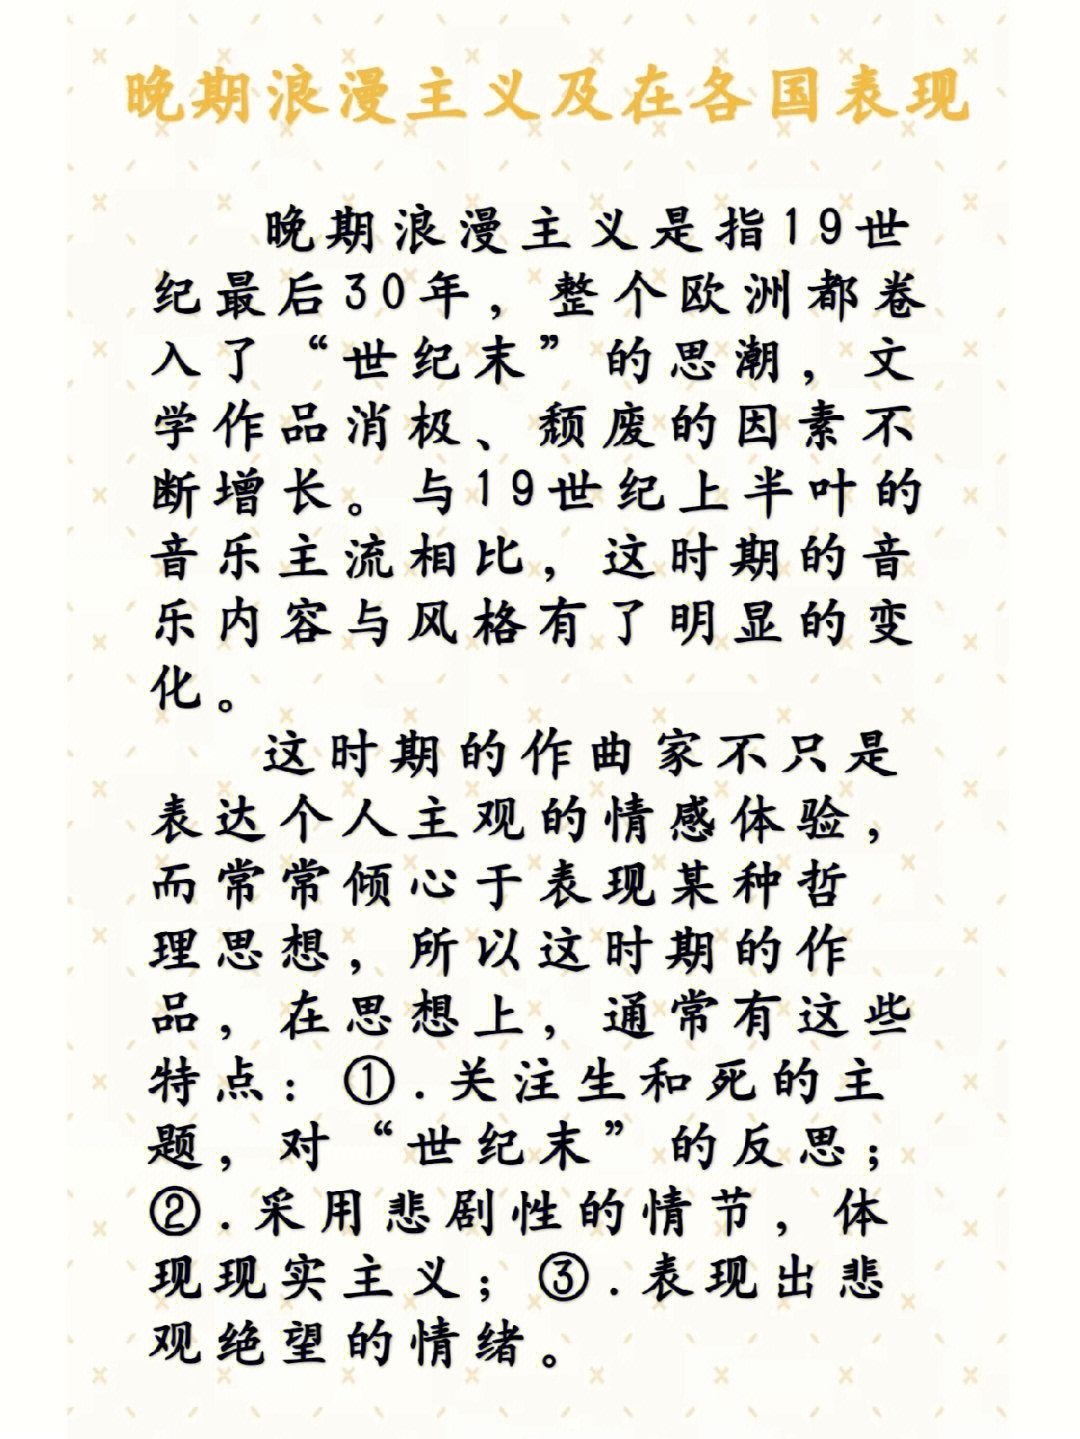 晚期浪漫主义及在各国表现
晚期浪漫主义是指19世
纪最后30年，整个欧洲都卷
入了“世纪末”的思潮，文
学作品消极、颓废的因素不
断增长。与19世纪上半叶的
音乐主流相比，这时期的音
乐内容与风格有了明显的变
化。
这时期的作曲家不只是
表达个人主观的情感体验，
而常常倾心于表现某种哲
理思想，所以这时期的作
品，在思想上，通常有这些
特点：①.关注生和死的主
题，对“世纪末”的反思；
②.采用悲剧性的情节，体
现现实主义；③.表现出悲
观绝望的情绪。